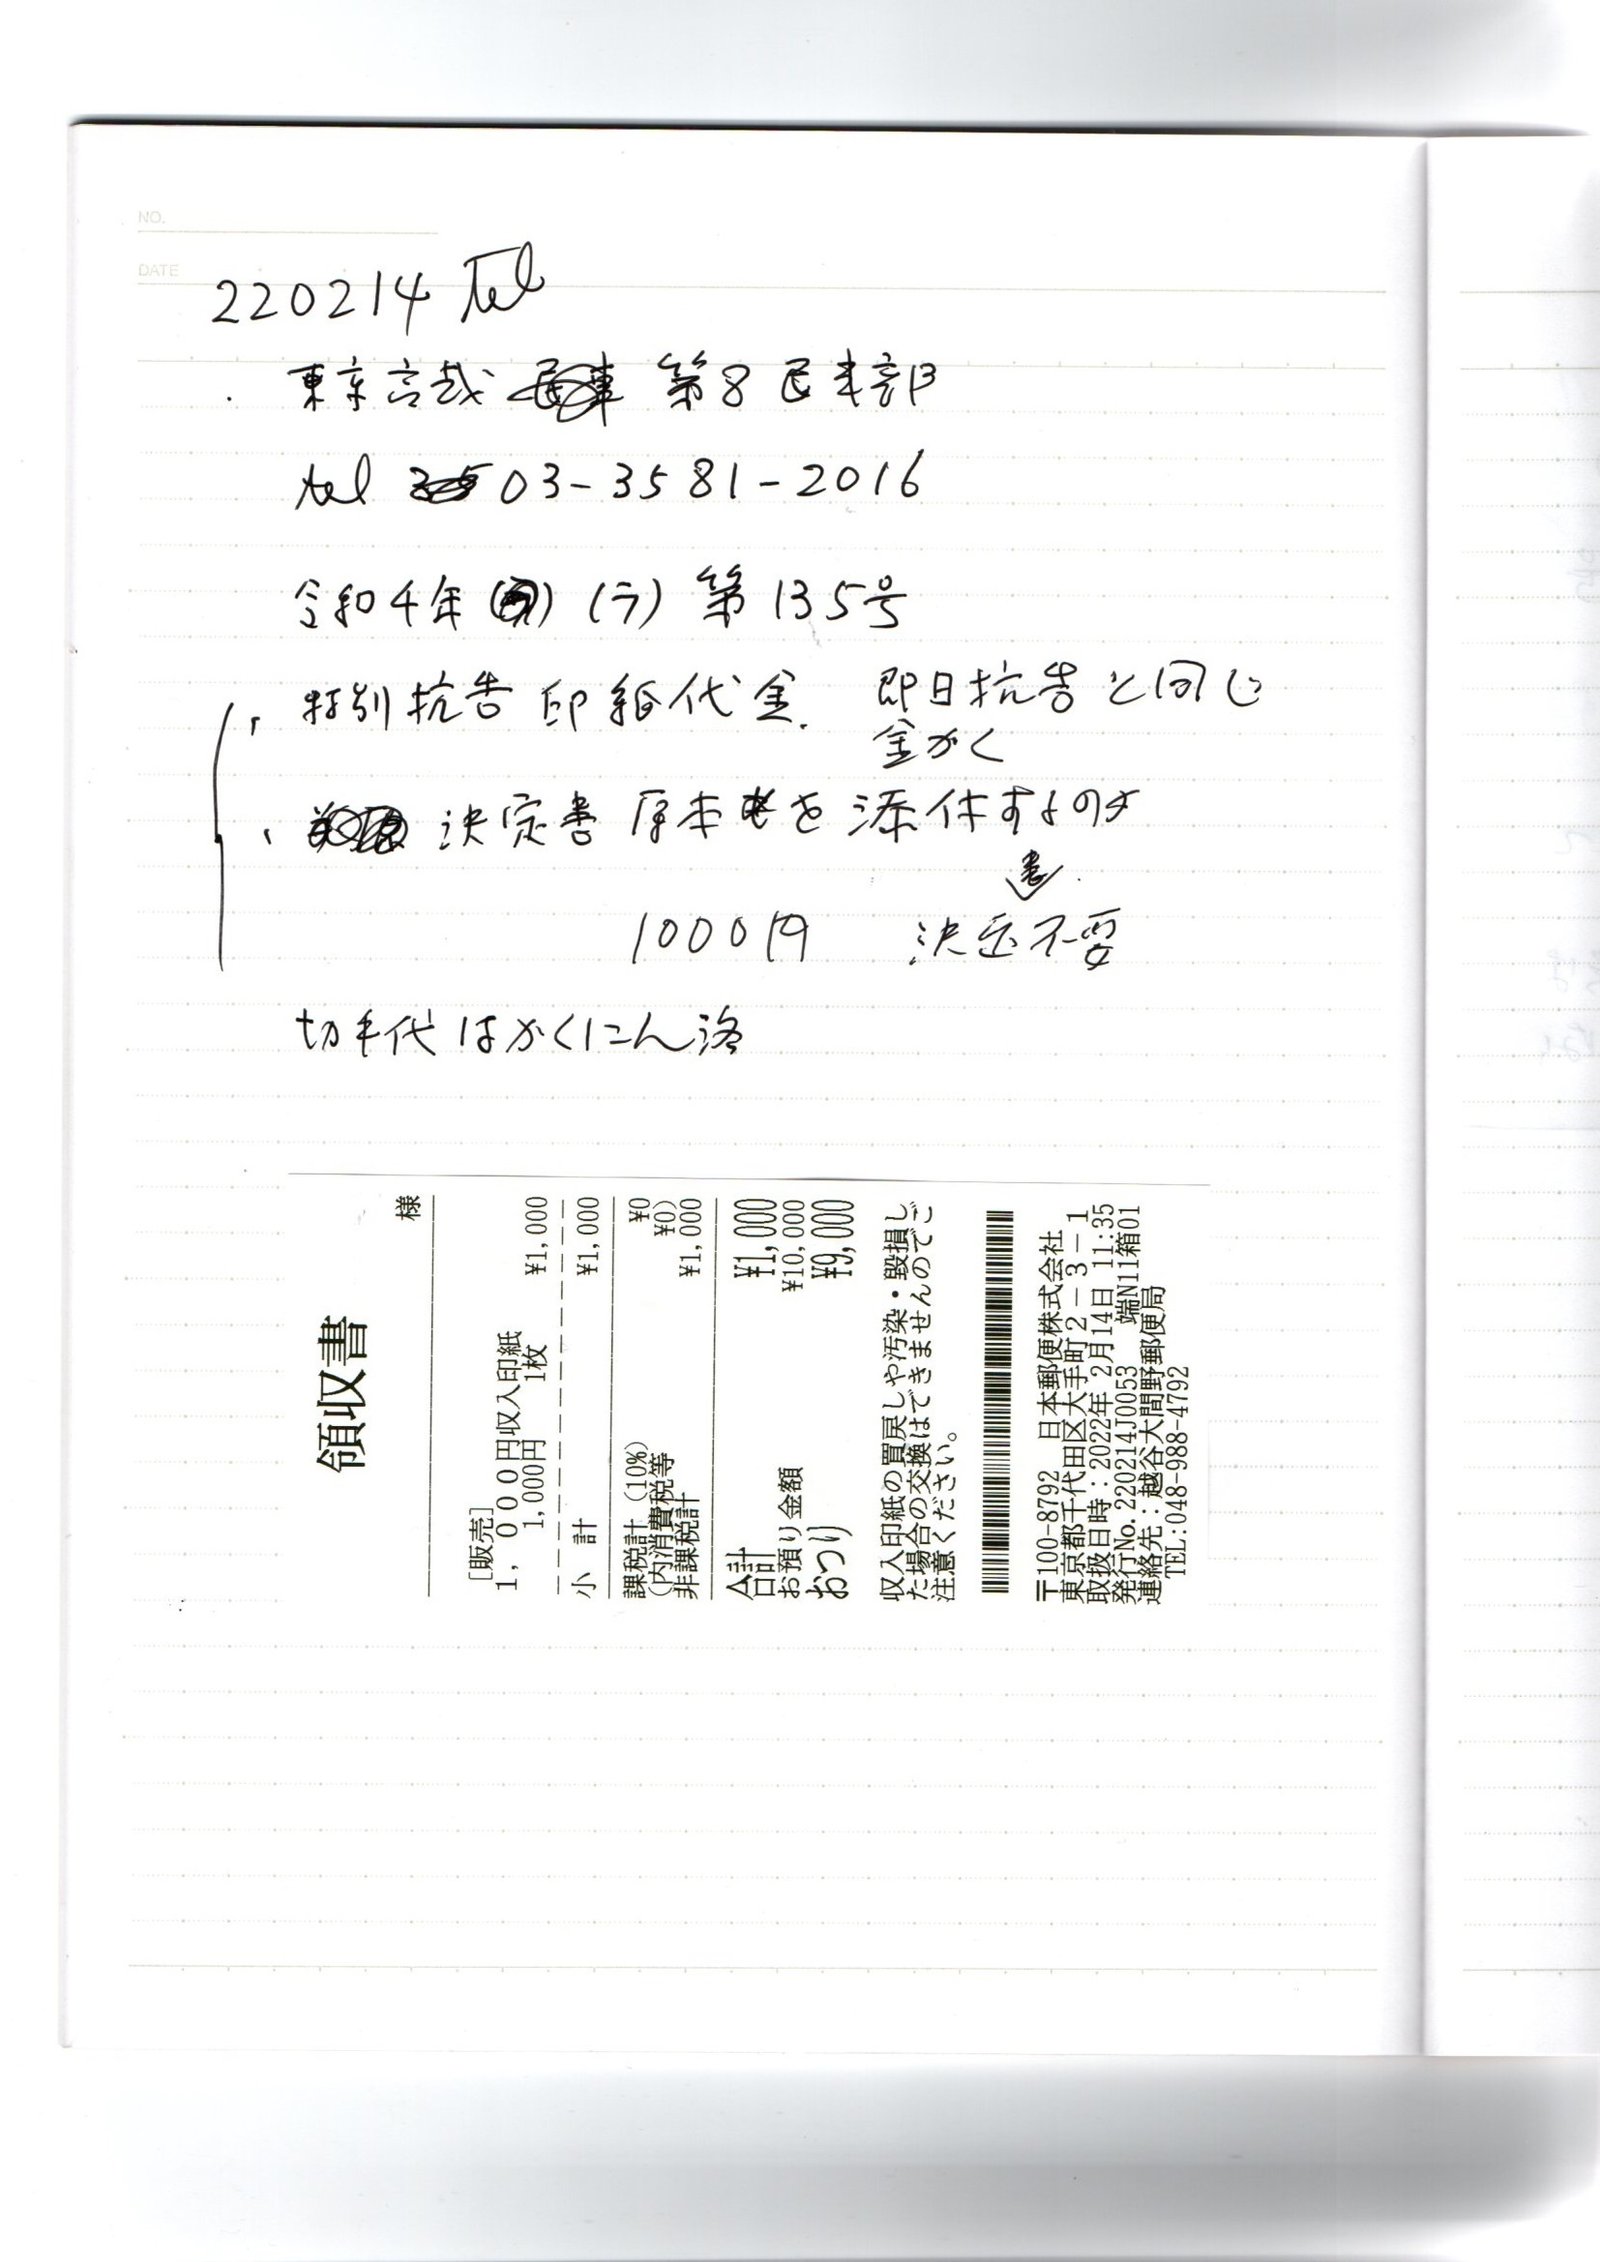 NO.
DATE
220214 Tel
東京高裁 第8民事部
tel 03-3581-2016
令和4年 (ラ) 第135号
特別抗告 印紙代金. 即日抗告と同じ
金がく
決定書 原本を添付する
書
1000円 決定不要
切手代はかくにん済
領収書
様
[販売]
1,000円収入印紙
1,000円 1枚 ¥1,000
小 計 ¥1,000
課税計(10%) ¥0
(内消費税等 ¥0)
非課税計 ¥1,000
合計 ¥1,000
お預り金額 ¥10,000
おつり ¥9,000
収入印紙の買戻しや汚染・毀損し
た場合の交換はできませんのでご
注意ください。
〒100-8792 日本郵便株式会社
東京都千代田区大手町2-3-1
取扱日時:2022年 2月14日 11:35
発行No.220214J0053 端N11箱01
連絡先:越谷大間野郵便局
TEL:048-988-4792